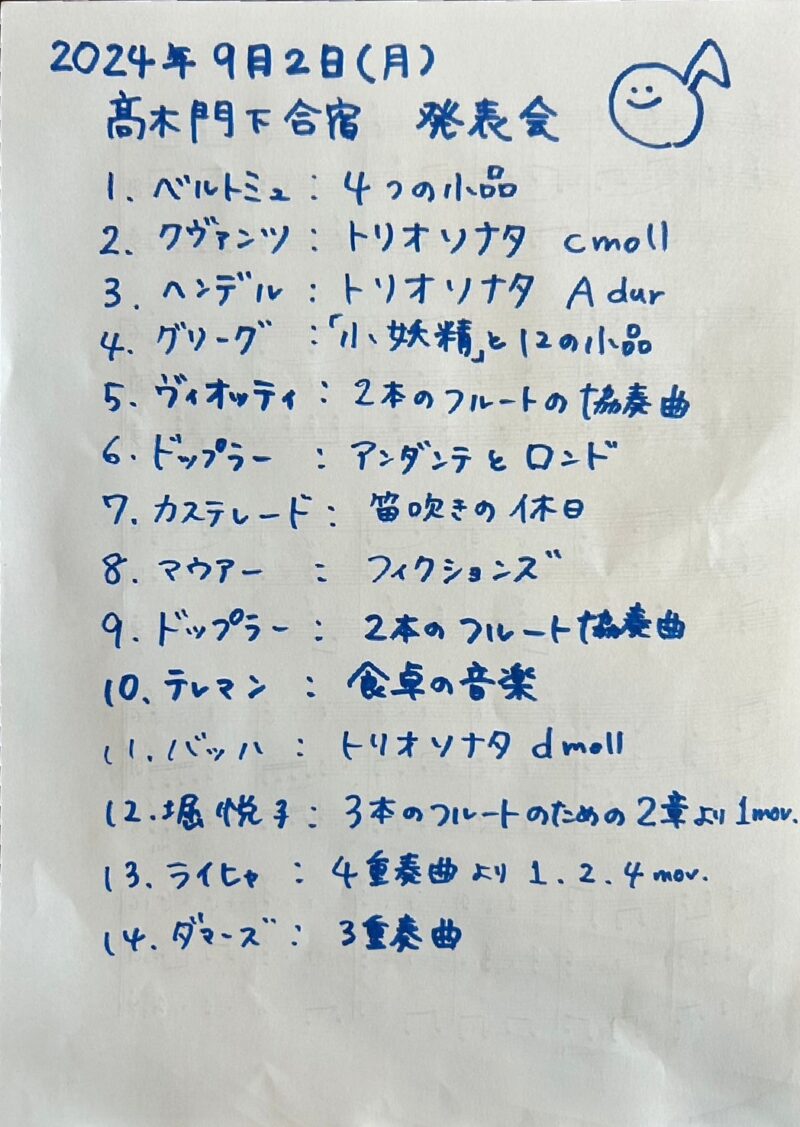 2024年9月2日(月)
髙木門下合宿 発表会
1. ベルトミュ : 4つの小品
2. クヴァンツ : トリオソナタ cmoll
3. ヘンデル : トリオソナタ A dur
4. グリーグ :「小妖精」と12の小品
5. ヴィオッティ : 2本のフルートの協奏曲
6. ドップラー : アンダンテとロンド
7. カステレード : 笛吹きの休日
8. マウアー : フィクションズ
9. ドップラー : 2本のフルート協奏曲
10. テレマン : 食卓の音楽
11. バッハ : トリオソナタ dmoll
12. 堀悦子 : 3本のフルートのための2章より1mov.
13. ライヒャ : 4重奏曲より 1. 2. 4 mov.
14. ダマーズ : 3重奏曲